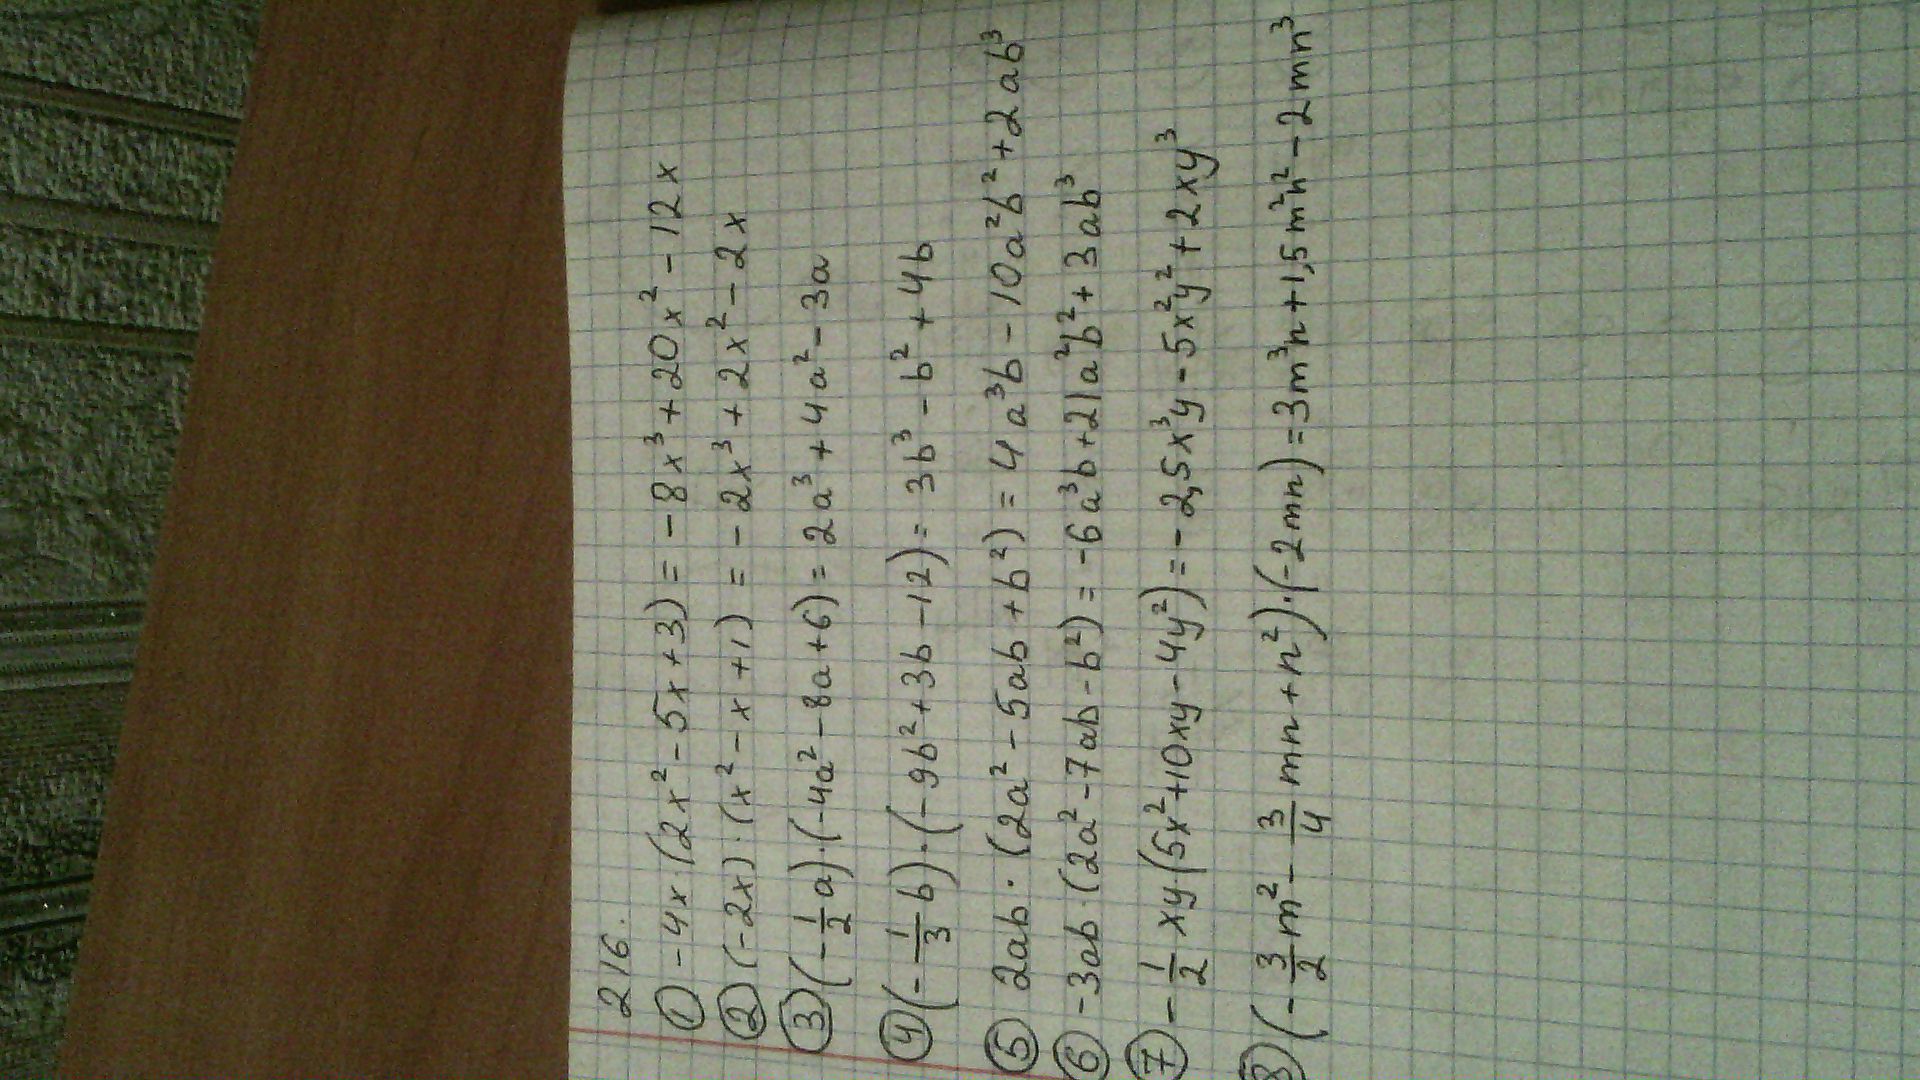 216.
① -4x·(2x²-5x+3) = -8x³+20x²-12x
② (-2x)·(x²-x+1) = -2x³+2x²-2x
③ (-1/2a)·(-4a²-8a+6) = 2a³+4a²-3a
④ (-1/3b)·(-9b²+3b-12) = 3b³-b²+4b
⑤ 2ab·(2a²-5ab+b²) = 4a³b-10a²b²+2ab³
⑥ -3ab·(2a²-7ab-b²) = -6a³b+21a²b²+3ab³
⑦ -1/2xy(5x²+10xy-4y²) = -2,5x³y-5x²y²+2xy³
⑧ (-3/2m²-3/4mn+n²)·(-2mn) = 3m³n+1,5m²n²-2mn³